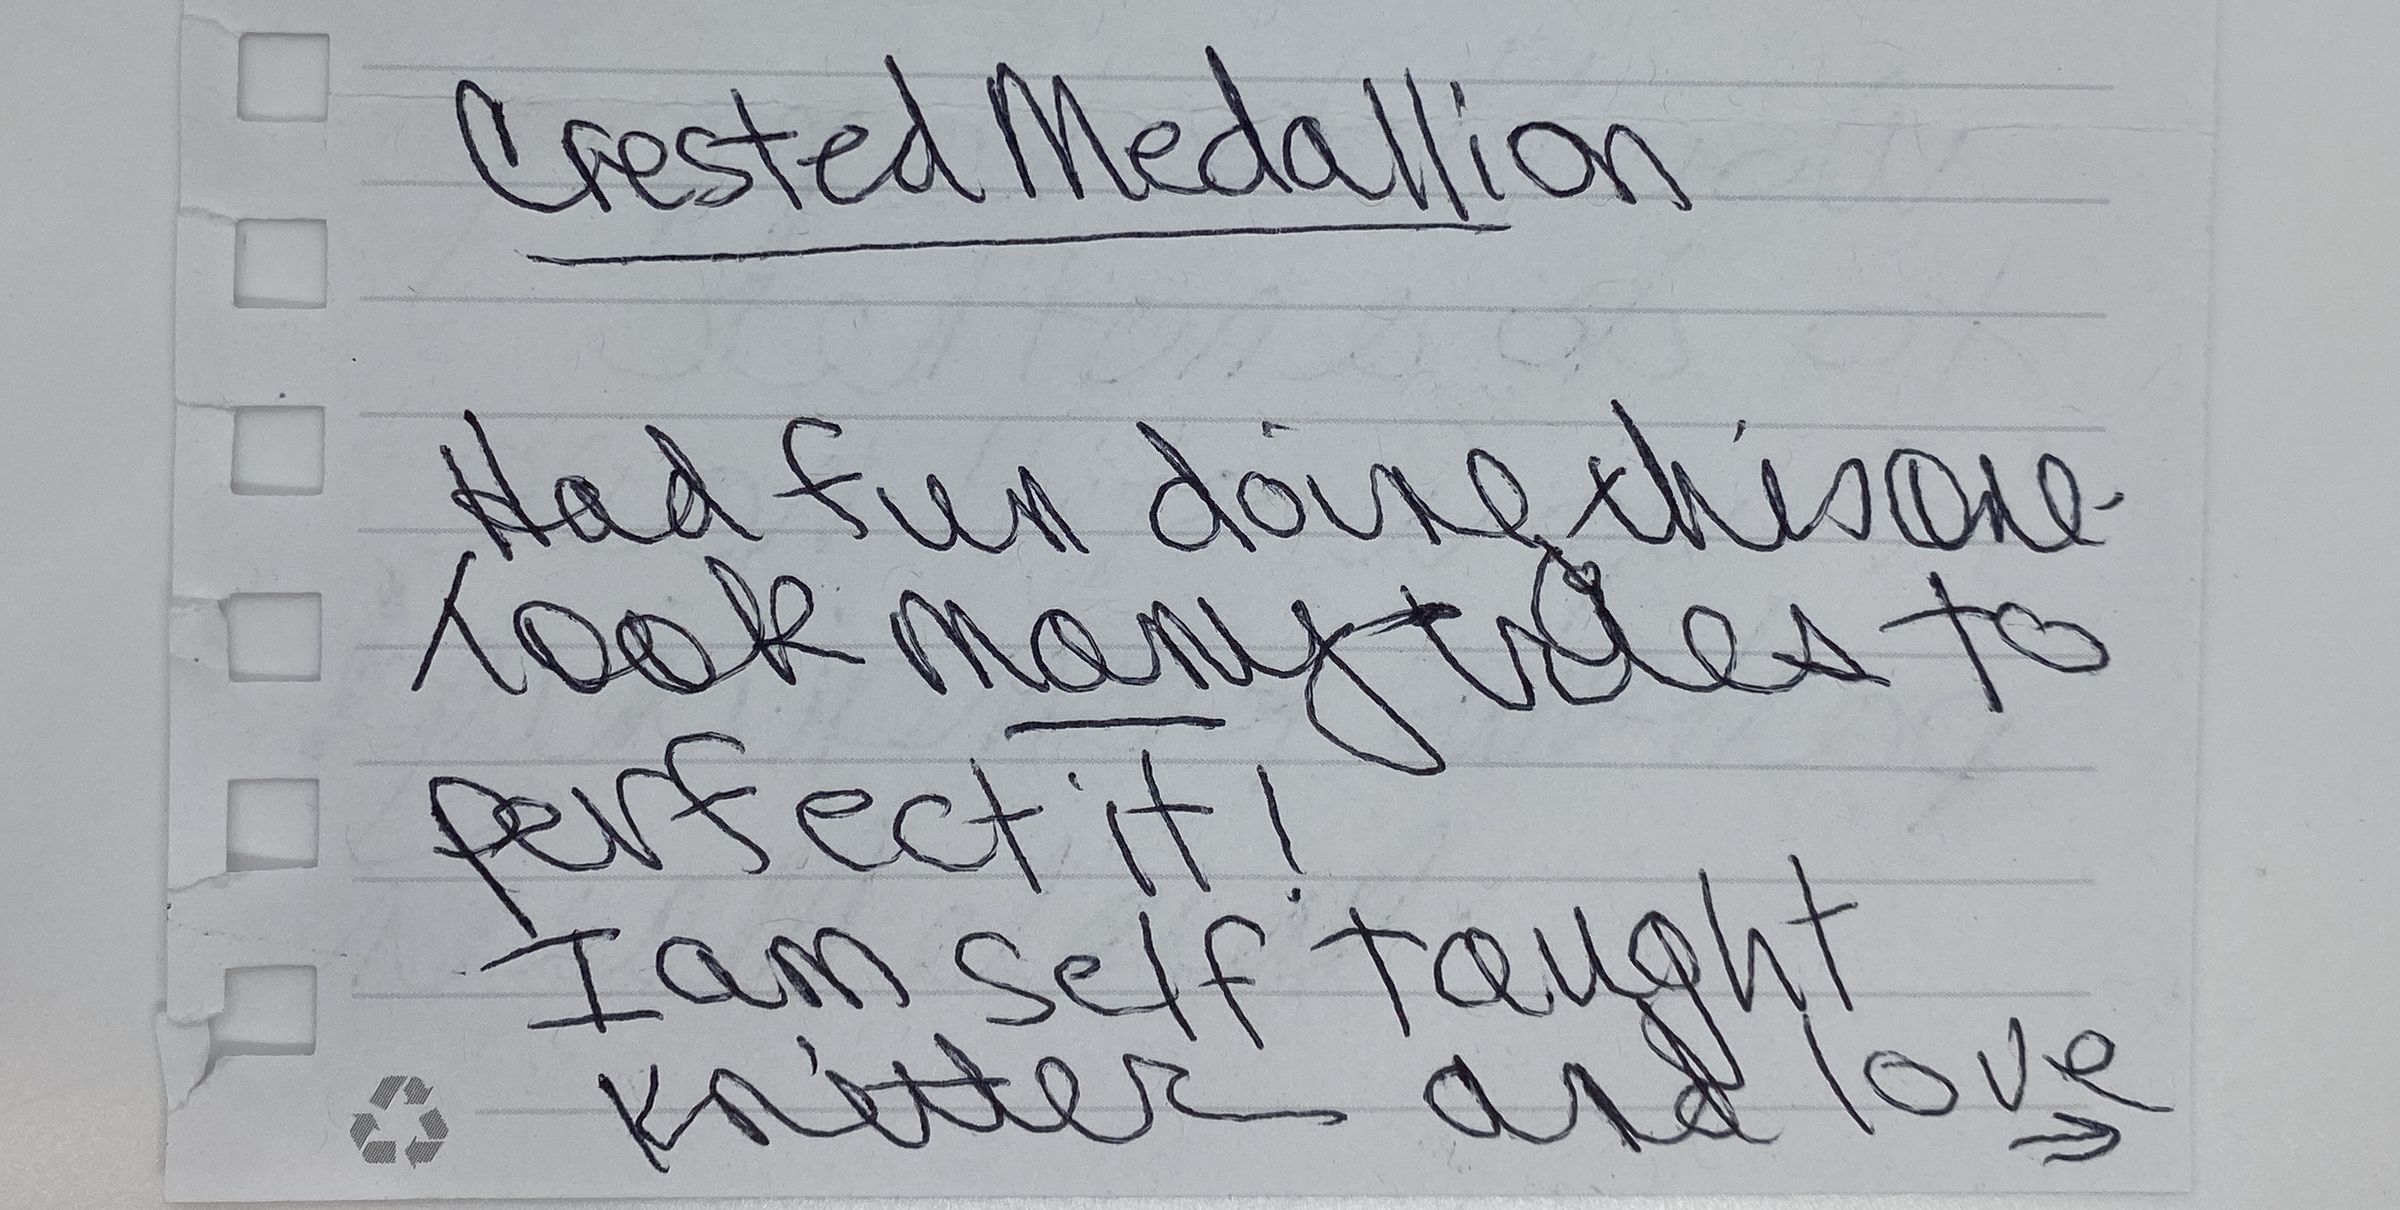 Crested Medallion
Had fun doing this one
Took many tries to
perfect it!
I am self taught
knitter and love